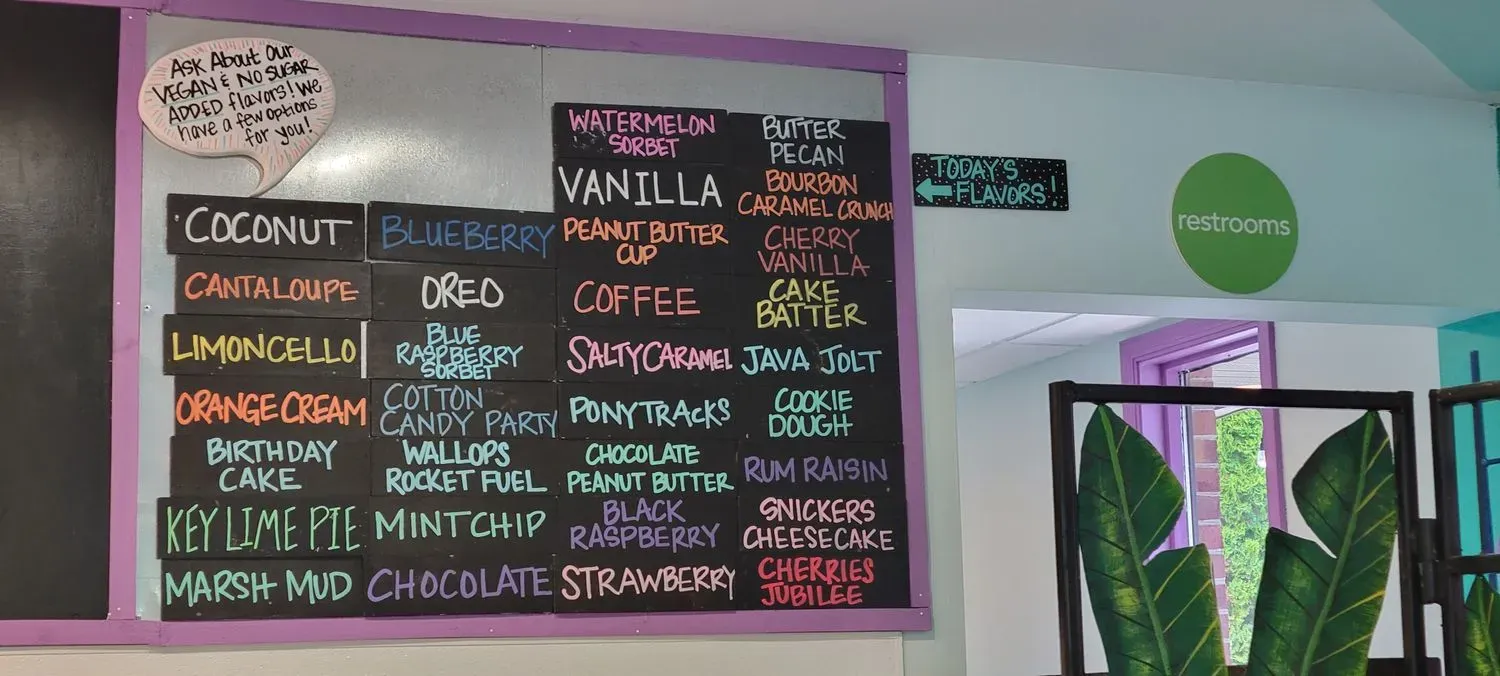 Ask About Our
VEGAN & NO SUGAR
ADDED flavors! We
have a few options
for you!
COCONUT
CANTALOUPE
LIMONCELLO
ORANGE CREAM
BIRTHDAY
CAKE
KEY LIME PIE
MARSH MUD
BLUEBERRY
OREO
BLUE
RASPBERRY
SORBET
COTTON
CANDY PARTY
WALLOPS
ROCKET FUEL
MINT CHIP
CHOCOLATE
WATERMELON
SORBET
VANILLA
PEANUT BUTTER
CUP
COFFEE
SALTY CARAMEL
PONY TRACKS
CHOCOLATE
PEANUT BUTTER
BLACK
RASPBERRY
STRAWBERRY
BUTTER
PECAN
BOURBON
CARAMEL CRUNCH
CHERRY
VANILLA
CAKE
BATTER
JAVA JOLT
COOKIE
DOUGH
RUM RAISIN
SNICKERS
CHEESECAKE
CHERRIES
JUBILEE
TODAY'S
FLAVORS!
restrooms